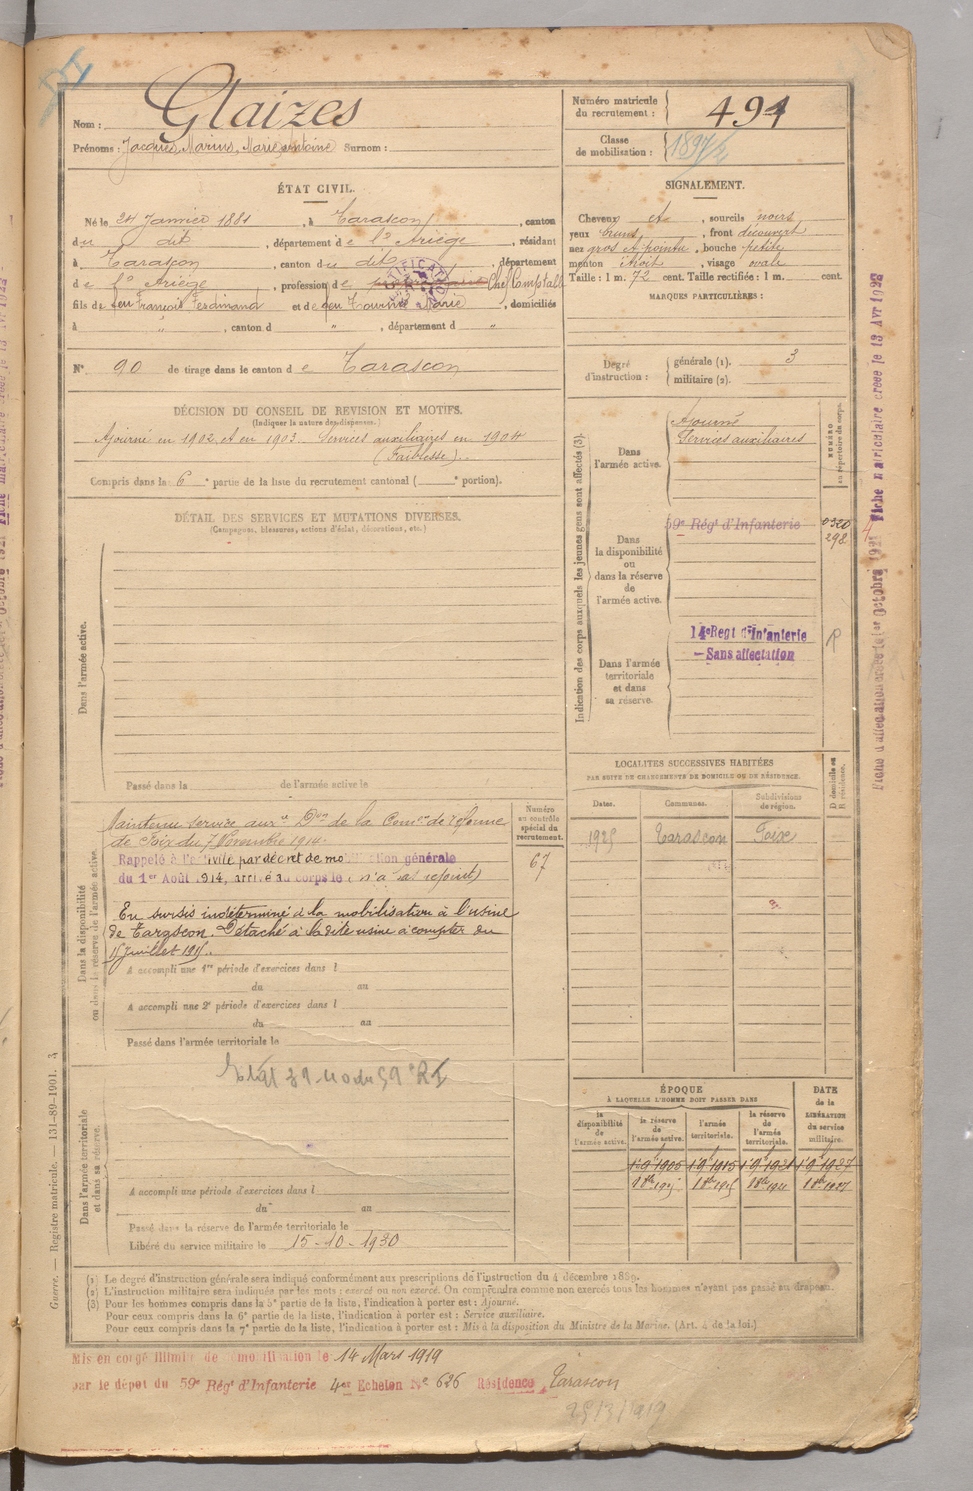 Nom : Glaizes
Prénoms : Jacques, Marius, Marie, Antoine Surnom :
Numéro matricule du recrutement : 491
Classe de mobilisation :
ÉTAT CIVIL.
Né le 24 Janvier 1881, à Tarascon, canton
du dit, département de l'Ariège, résidant
à Tarascon, canton du dit, département
de l'Ariège, profession de Chef Comptable
fils de feu François Ferdinand et de feu Marie, domiciliés
à " , canton d " , département d "
N° 90 de tirage dans le canton de Tarascon
SIGNALEMENT.
Cheveux et, sourcils noirs
yeux bruns, front découvert
nez gros et pointu, bouche petite
menton étroit, visage ovale
Taille : 1 m. 72 cent. Taille rectifiée : 1 m. cent.
MARQUES PARTICULIÈRES :
Degré d'instruction : générale (1). 3
militaire (2).
DÉCISION DU CONSEIL DE REVISION ET MOTIFS.
(Indiquer la nature des dispenses.)
Ajourné en 1902, et en 1903. Services auxiliaires en 1904
(Faiblesse).
Compris dans la 6e partie de la liste du recrutement cantonal ( e portion).
DÉTAIL DES SERVICES ET MUTATIONS DIVERSES.
(Campagnes, blessures, actions d'éclat, décorations, etc.)
Dans l'armée active.
Passé dans la de l'armée active le
Indication des corps auxquels les jeunes gens sont affectés (3).
NUMÉRO au répertoire du corps.
Dans l'armée active.
Ajourné
Services auxiliaires
Dans la disponibilité ou dans la réserve de l'armée active.
59e Régt d'Infanterie
0320
298
Dans l'armée territoriale et dans sa réserve.
14e Regt d'Infanterie
— Sans affectation
R
LOCALITÉS SUCCESSIVES HABITÉES
PAR SUITE DE CHANGEMENTS DE DOMICILE OU DE RÉSIDENCE.
Dates. Communes. Subdivisions de région. D domicile ou R résidence.
1925 Tarascon Foix
Dans la disponibilité ou dans la réserve de l'armée active.
Numéro au contrôle spécial du recrutement.
67
Maintenu service auxre Don de la Comon de réforme
de Foix du 7 Novembre 1914.
Rappelé à l'activité par décret de mobilisation générale
du 1er Août 1914, arrivé au corps le (n'a pas rejoint)
En sursis indéterminé à la mobilisation à l'usine
de Tarascon. Détaché à la dite usine à compter du
15 Juillet 1915.
A accompli une 1re période d'exercices dans l
du au
A accompli une 2e période d'exercices dans l
du au
Passé dans l'armée territoriale le
Dans l'armée territoriale et dans sa réserve.
A accompli une période d'exercices dans l
du au
Passé dans la réserve de l'armée territoriale le
Libéré du service militaire le 15-10-1930
ÉPOQUE
À LAQUELLE L'HOMME DOIT PASSER DANS
DATE de la LIBÉRATION du service militaire.
la disponibilité de l'armée active. la réserve de l'armée active. l'armée territoriale. la réserve de l'armée territoriale.
(1) Le degré d'instruction générale sera indiqué conformément aux prescriptions de l'instruction du 4 décembre 1889.
(2) L'instruction militaire sera indiquée par les mots : exercé ou non exercé. On comprendra comme non exercés tous les hommes n'ayant pas passé au drapeau.
(3) Pour les hommes compris dans la 5e partie de la liste, l'indication à porter est : Ajourné.
Pour ceux compris dans la 6e partie de la liste, l'indication à porter est : Service auxiliaire.
Pour ceux compris dans la 7e partie de la liste, l'indication à porter est : Mis à la disposition du Ministre de la Marine. (Art. 4 de la loi.)
Mis en congé illimité de démobilisation le 14 Mars 1919
par le dépôt du 59e Régt d'Infanterie 4e Echelon N° 626 Résidence Tarascon
25/3/1919
Guerre. — Registre matricule. — 131-89-1901.